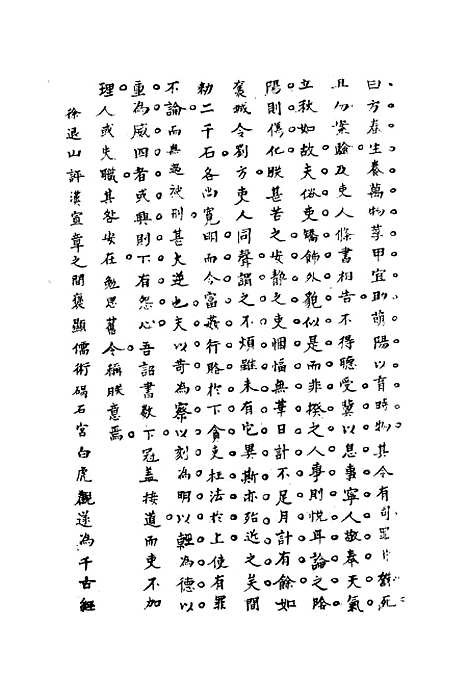 曰方春生養萬物莩甲宜助萌陽以育時物其令有司罪非殊死
且勿案驗及吏人條書相告不得聽受冀以息事寧人敬奉天氣
立秋如故夫俗吏矯飾外貌似是而非揆之人事則悅耳論之陰
陽則傷化朕甚苦之安靜之吏悃愊無華日計不足月計有餘如
襄城令劉方吏人同聲謂之不煩雖未有它異斯亦殆近之矣間
勑二千石各尚寬明而今富姦行賂於下貪吏枉法於上使有罪
不論而無過被刑甚大逆也夫以苛為察以刻為明以輕為德以
重為威四者或興則下有怨心吾詔書數下冠蓋接道而吏不加
理人或失職其咎安在勉思舊令稱朕意焉
徐退山評漢宣章之間褒顯儒術碣石宮白虎觀遂為千古經